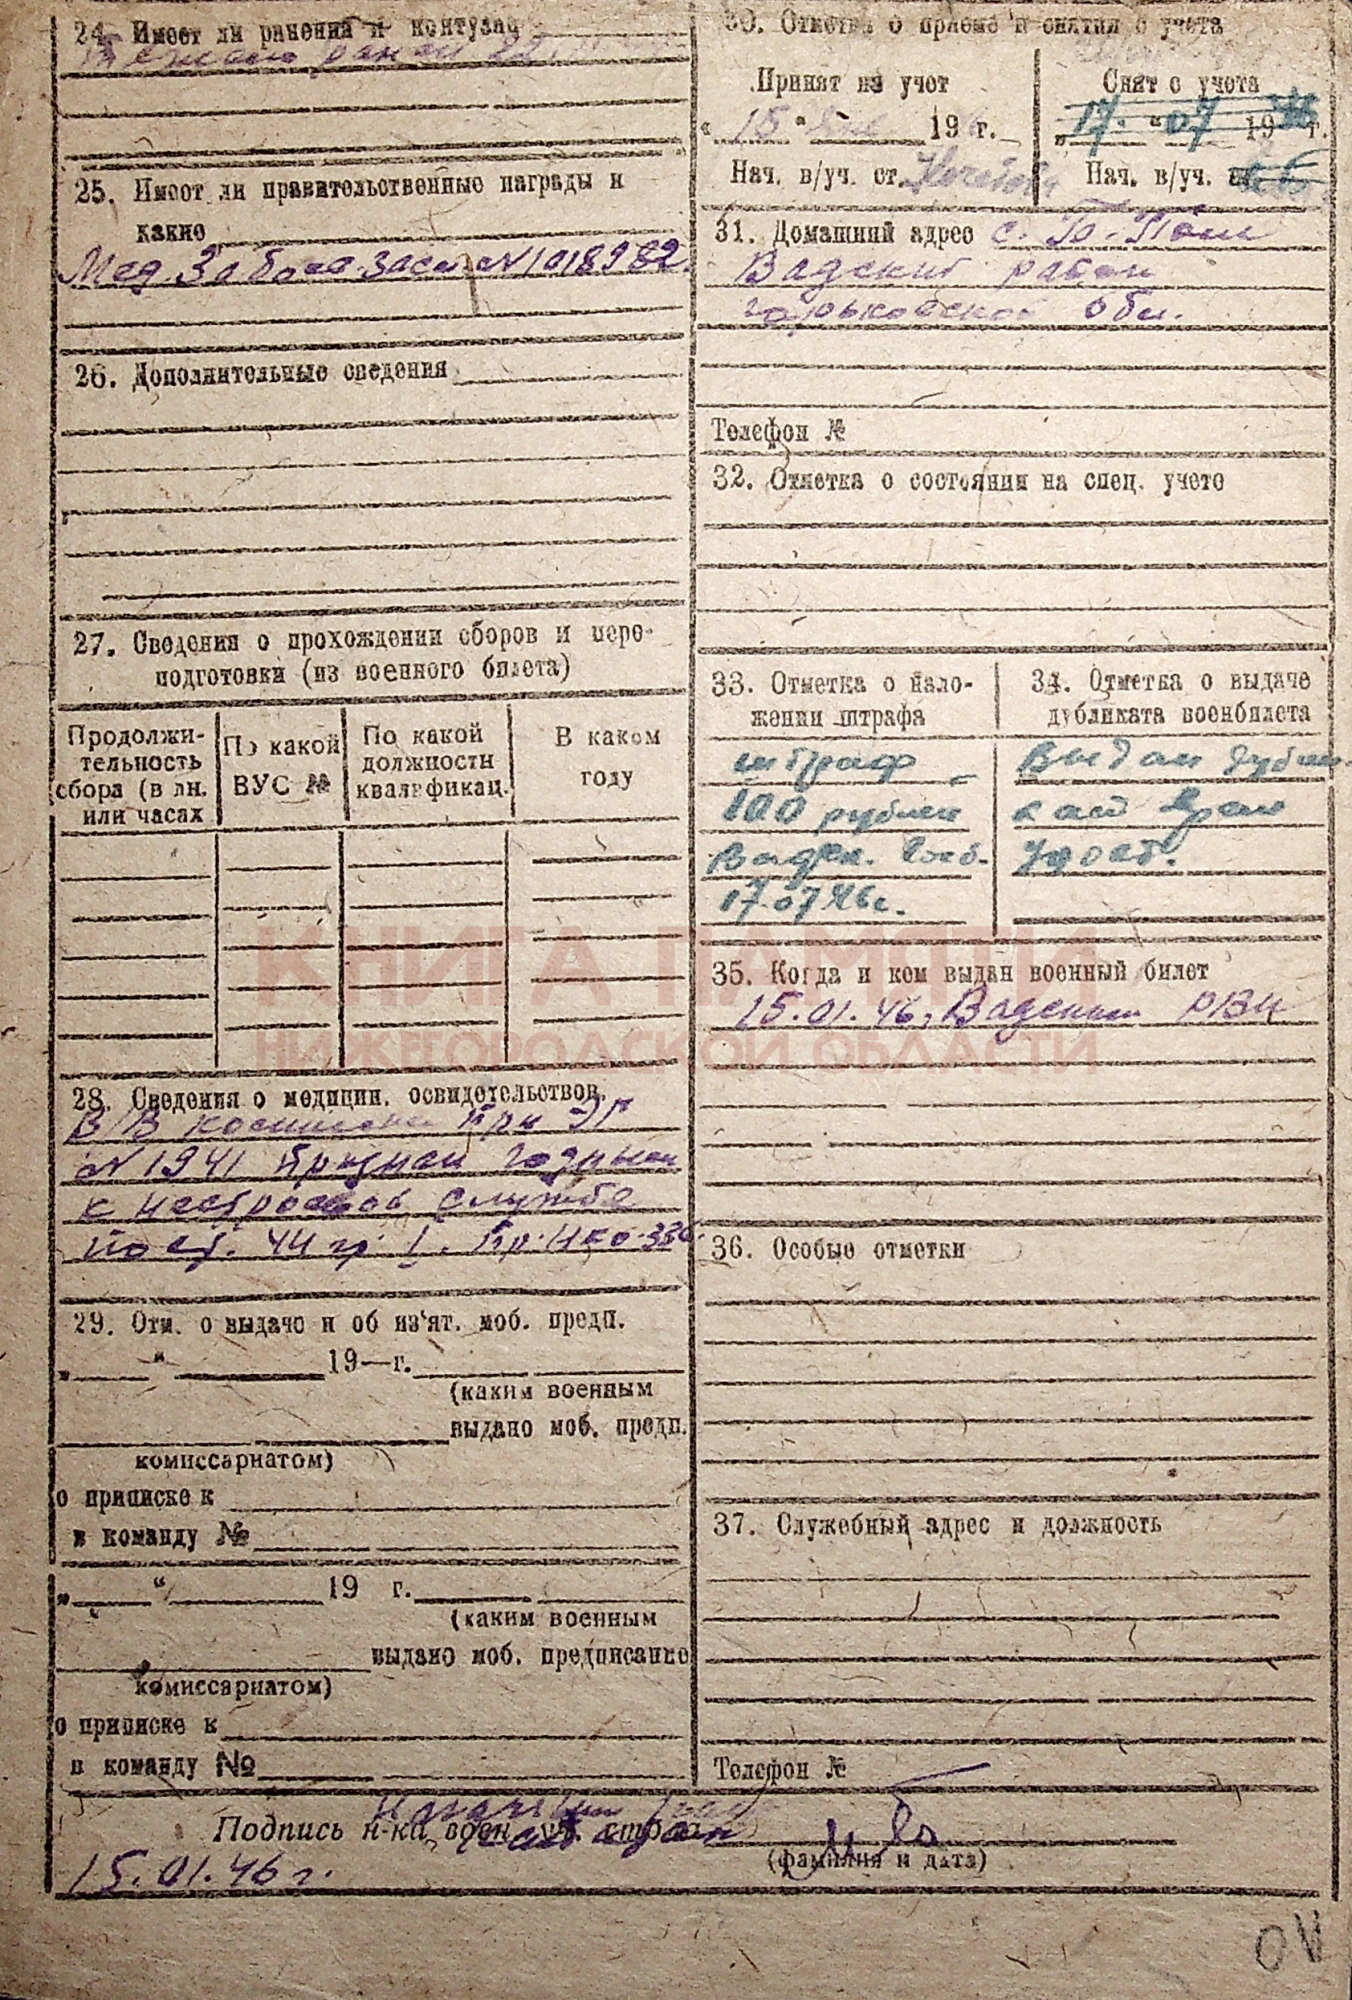 24. Имеет ли ранения и контузии
Тяжело ранен 22
25. Имеет ли правительственные награды и
какие
Мед. За боев. засл. N 1018982.
26. Дополнительные сведения
27. Сведения о прохождении сборов и пере-
подготовки (из военного билета)
Продолжи-
тельность
сбора (в дн.
или часах
По какой
ВУС №
По какой
должности
квалификац.
В каком
году
28. Сведения о медицин. освидетельствов.
В/В комиссии при ЭГ
N 1941 признан годным
к нестроевой службе
по ст. 44 гр. I. Пр. НКО-336.
29. Отм. о выдаче и об из'ят. моб. предп.
„ “ 19—г.
(каким военным
выдано моб. предп.
комиссариатом)
о приписке к
в команду №
„ “ 19 г.
(каким военным
выдано моб. предписание
комиссариатом)
о приписке к
в команду №
30. Отметка о приеме и снятии с учета
Принят на учет
„ 15 “ 194 г.
Нач. в/уч. ст.
Снят с учета
„ 17. “ 07 1946 г.
Нач. в/уч.
31. Домашний адрес с.
Вадский район
Горьковской обл.
Телефон №
32. Отметка о состоянии на спец. учете
33. Отметка о нало-
жении штрафа
штраф
100 рублей
17.07.46г.
34. Отметка о выдаче
дубликата военбилета
Выдан дубли-
кат врем
удост.
35. Когда и кем выдан военный билет
15.01.46, Вадским РВК
36. Особые отметки
37. Служебный адрес и должность
Телефон №
Подпись н-ка воен. уч. стола
(фамилия и дата)
15.01.46 г.
КНИГА ПАМЯТИ
НИЖЕГОРОДСКОЙ ОБЛАСТИ